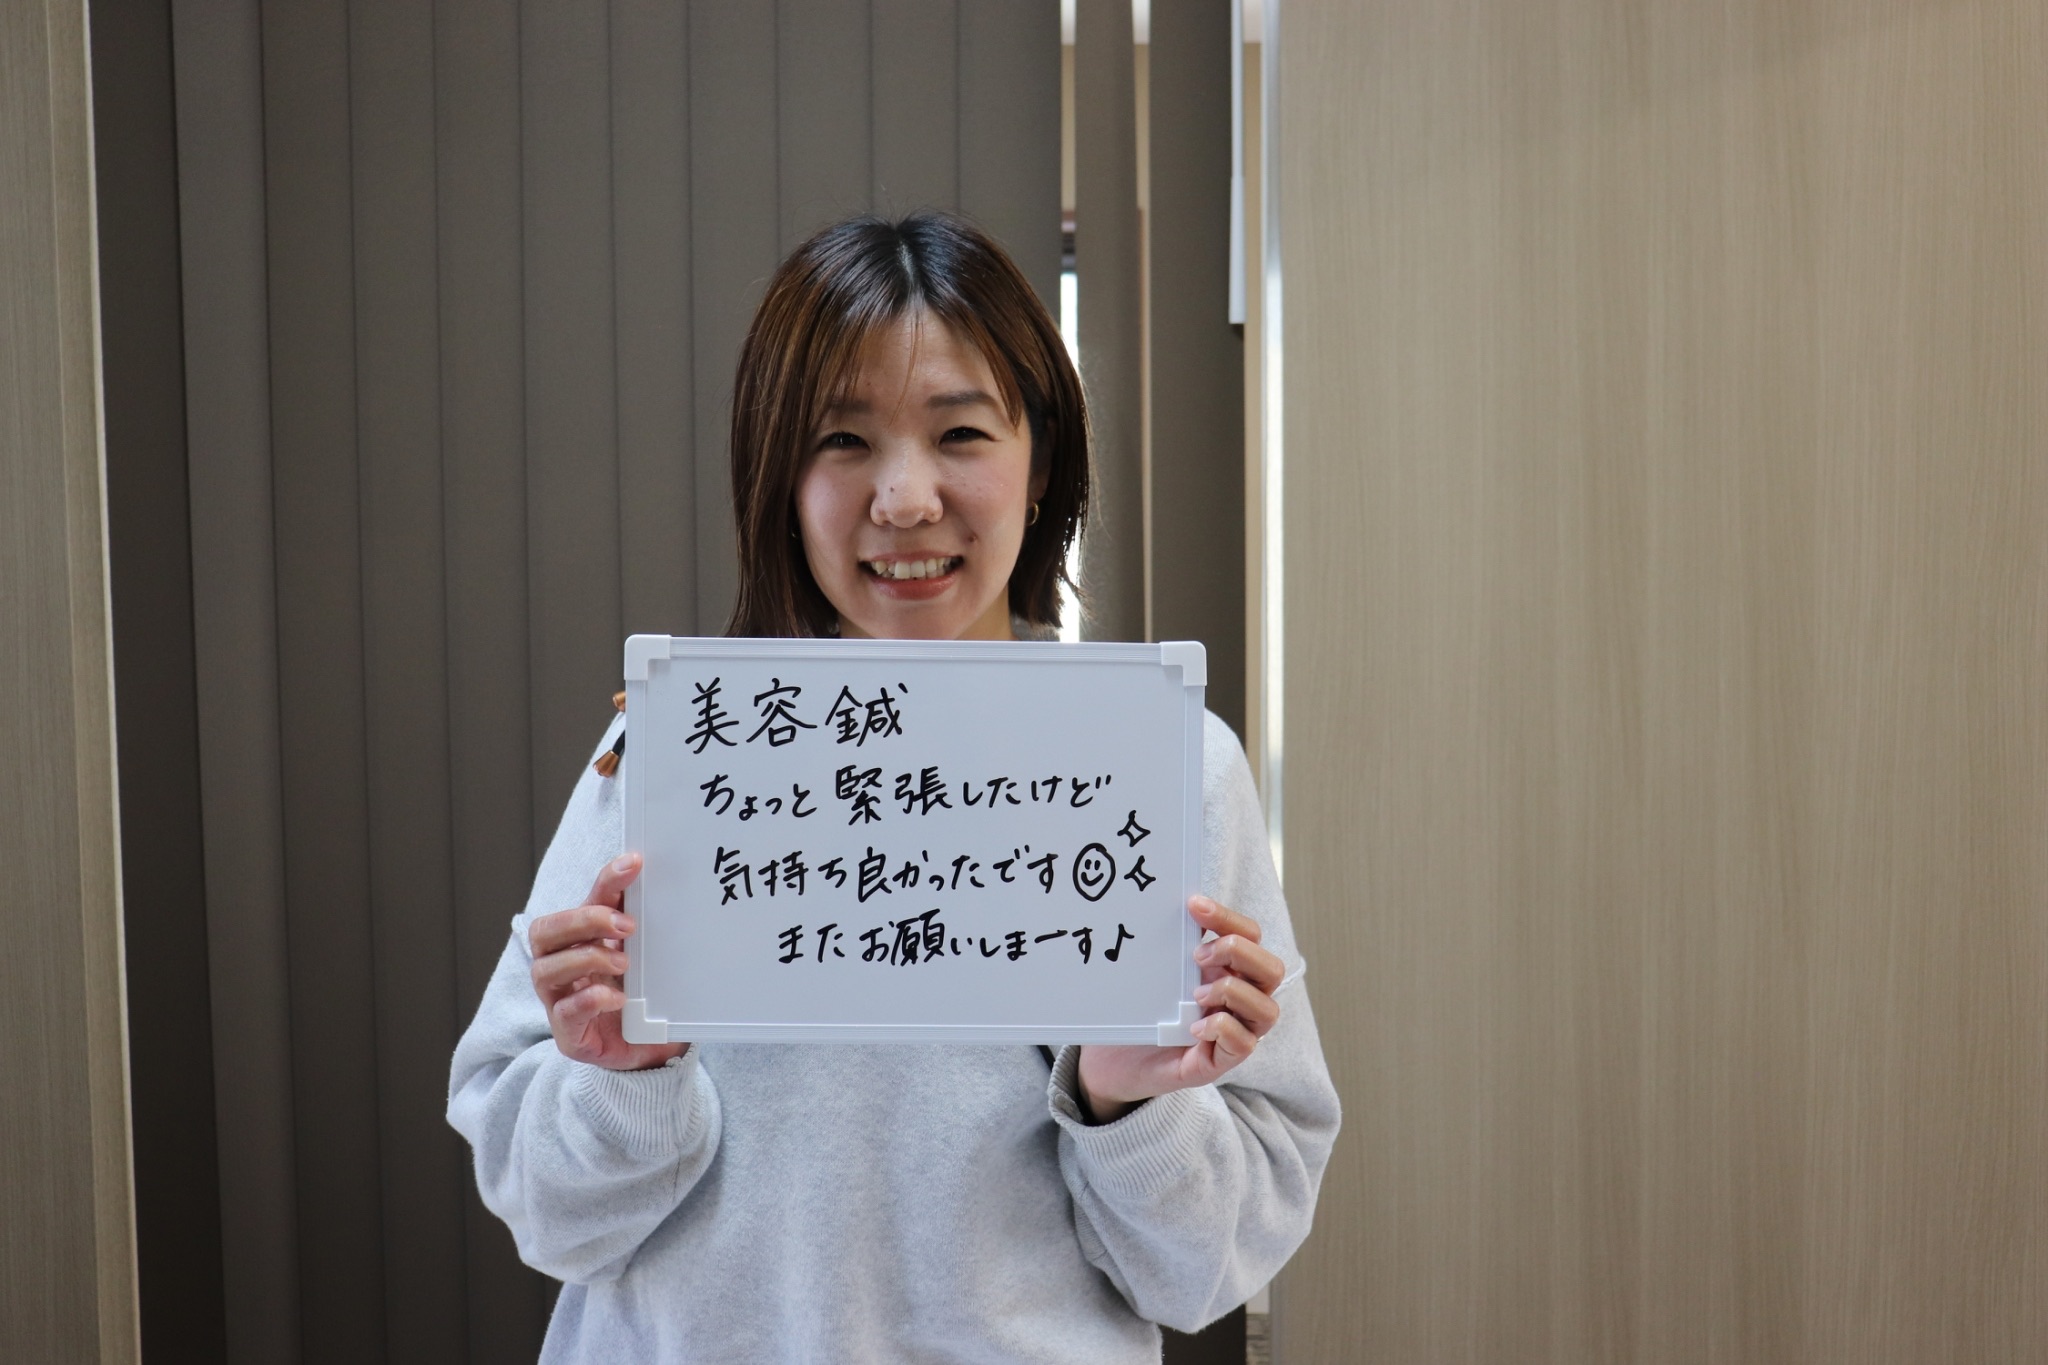 美容鍼
ちょっと緊張したけど
気持ち良かったです
またお願いしまーす♪